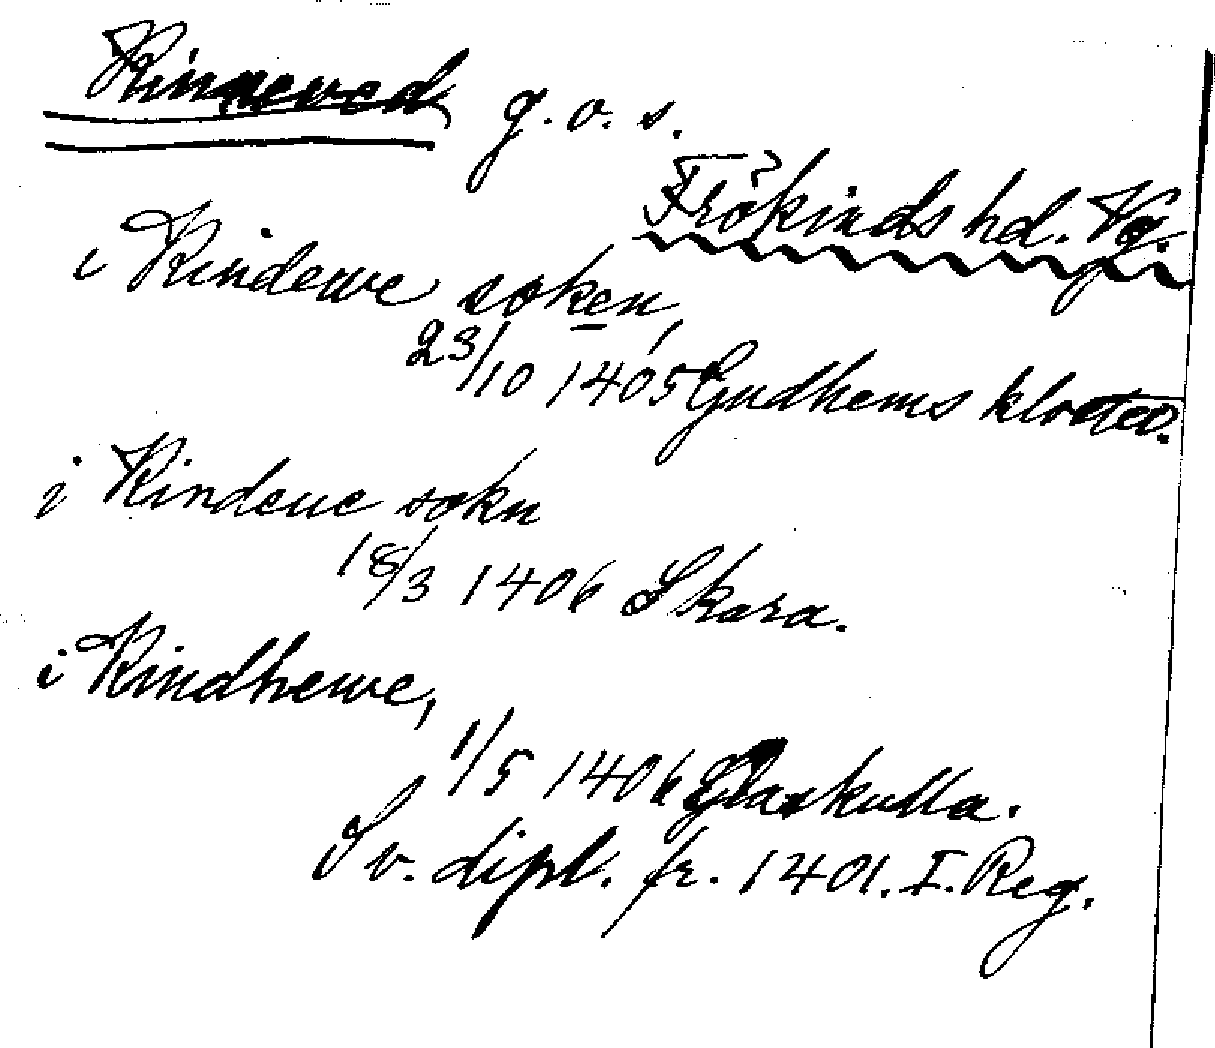 Kinneved g. o. s.
Frökinds hd. Vg.
i Kindewe soken,
23/10 1405 Gudhems kloster.
i Kindeue sokn
18/3 1406 Skara.
i Kindhewe,
1/5 1406 Skara.
Sv. dipl. fr. 1401. I. Reg.